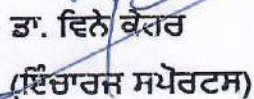 ਡਾ. ਵਿਨੇ ਕੇਹਰ
(ਇੰਚਾਰਜ ਸਪੋਰਟਸ)